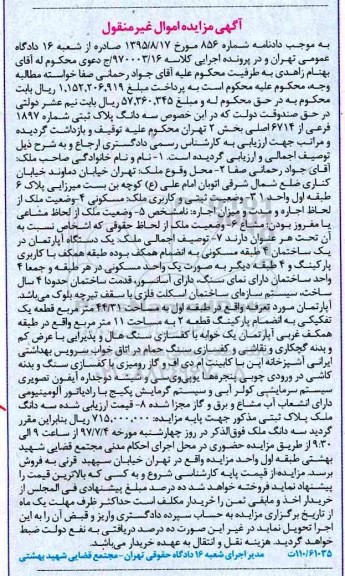 آگهی مزایده اموال غیر منقول
به موجب دادنامه شماره ۸۵۶ مورخ ۱۳۹۵/۸/۱۷ صادره از شعبه ۱۶ دادگاه
عمومی تهران و در پرونده اجرایی کلاسه ۹۷۰۰۰۳/۱۶/ج دعوی محکوم له آقای
بهنام زاهدی به طرفیت محکوم علیه آقای جواد رحمانی صفا خواسته مطالبه
وجه، محکوم علیه محکوم است به پرداخت مبلغ ۱,۱۵۲,۲۰۶,۹۱۹ ریال بابت
محکوم به در حق محکوم له و مبلغ ۵۷,۳۶۰,۳۴۵ ریال بابت نیم عشر دولتی
در حق صندوق دولت که در این خصوص سه دانگ پلاک ثبتی شماره ۱۸۹۷
فرعی از ۶۷۱۴ اصلی بخش ۲ تهران محکوم علیه توقیف و بازداشت گردیده
و مراتب جهت ارزیابی به کارشناس رسمی دادگستری ارجاع و به شرح ذیل
توصیف اجمالی و ارزیابی گردیده است. ۱- نام و نام خانوادگی صاحب ملک:
آقای جواد رحمانی صفا ۲- محل وقوع ملک: تهران خیابان دماوند خیابان
کناری ضلع شمال شرقی اتوبان امام علی (ع) کوچه بن بست میرزایی پلاک ۶
طبقه اول واحد ۱ ۳- وضعیت ثبتی و کاربری ملک: مسکونی ۴- وضعیت ملک از
لحاظ اجاره و مدت و میزان اجاره: نامشخص ۵- وضعیت ملک از لحاظ مشاعی
یا مفروز بودن: مشاع ۶- وضعیت ملک از لحاظ حقوقی که اشخاص نسبت به
آن تحت هر عنوان دارند ۷- توصیف اجمالی ملک: یک دستگاه آپارتمان در
یک ساختمان ۴ طبقه مسکونی به انضمام همکف بوده طبقه همکف با کاربری
پارکینگ و ۴ طبقه دیگر به صورت یک واحد مسکونی در هر طبقه و جمعا ۴
واحد ساختمان دارای نمای سنگ، دارای آسانسور، قدمت ساختمان حدودا ۴ سال
ساخت، سیستم سازه‌ای ساختمان اسکلت فلزی با سقف تیرچه بلوک می‌باشد.
آپارتمان مورد تعرفه واقع در طبقه اول به مساحت ۴۴/۳۱ متر مربع قطعه یک
تفکیکی به انضمام پارکینگ قطعه ۲ به مساحت ۱۱ متر مربع واقع در طبقه
همکف غربی آپارتمان یک خوابه با کفسازی سنگ هال و پذیرایی با عرض کم
و بدنه گچکاری و نقاشی و کفسازی سنگ حمام در اتاق خواب سرویس بهداشتی
ایرانی آشپزخانه اپن با کابینت ام دی اف و گاز رومیزی با کفسازی سنگ و بدنه
کاشی در ورودی چوبی پنجره‌ها یو‌پی‌وی‌سی و شیشه دوجداره آیفون تصویری
سیستم سرمایشی کولر آبی و سیستم گرمایش پکیج با رادیاتور آلومینیومی
دارای انشعاب آب مشاع و برق و گاز مجزا شده ۸- قیمت ارزیابی شده سه دانگ
ملک پلاک ثبتی مذکور جهت پایه مزایده: ۷۱۵,۰۰۰,۰۰۰ ریال بنابراین مقرر
گردید سه دانگ ملک فوق‌الذکر در روز چهارشنبه مورخه ۹۷/۷/۴ از ساعت ۹ الی
۹:۳۰ از طریق مزایده حضوری در محل اجرای احکام مدنی مجتمع قضایی شهید
بهشتی طبقه اول واحد مزایده واقع در تهران خیابان سپهبد قرنی به فروش
برسد. مزایده از قیمت پایه کارشناسی شروع و به کسی که بالاترین قیمت را
پیشنهاد نماید فروخته خواهد شد ده درصد مبلغ پیشنهادی فی المجلس از
خریدار اخذ و مابقی ثمن را خریدار مکلف است حداکثر ظرف مهلت یک ماه
از تاریخ برگزاری مزایده به حساب سپرده دادگستری واریز و قبض آن را به این
اجرا تحویل نماید در غیر این صورت ده درصد دریافتی به نفع دولت ضبط
خواهد گردید. هزینه نقل و انتقال به عهده خریدار می‌باشد.
۱۱۰/۶۱۰۳۵ت مدیر اجرای شعبه ۱۶ دادگاه حقوقی تهران - مجتمع قضایی شهید بهشتی